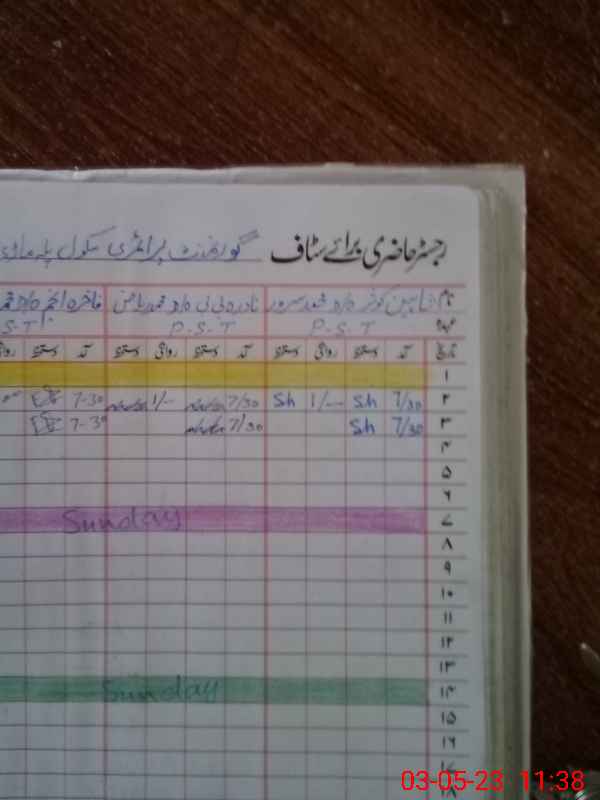 رجسٹر حاضری برائے سٹاف گورنمنٹ پرائمری سکول
نام شاہین کوثر د/و محمد سرور نادرہ بی بی د/و محمد ریاض فاخرہ انجم د/و
عہدہ P.S.T P.S.T S.T
تاریخ آمد دستخط روانگی دستخط آمد دستخط روانگی دستخط آمد دستخط
۱
۲ 7/30 Sh 1/- Sh 7/30 1/- 7-30
۳ 7/30 Sh 7/30 7-30
۴
۵
۶
۷ Sunday
۸
۹
۱۰
۱۱
۱۲
۱۳
۱۴ Sunday
۱۵
۱۶
۱۷
۱۸
03-05-23 11:38